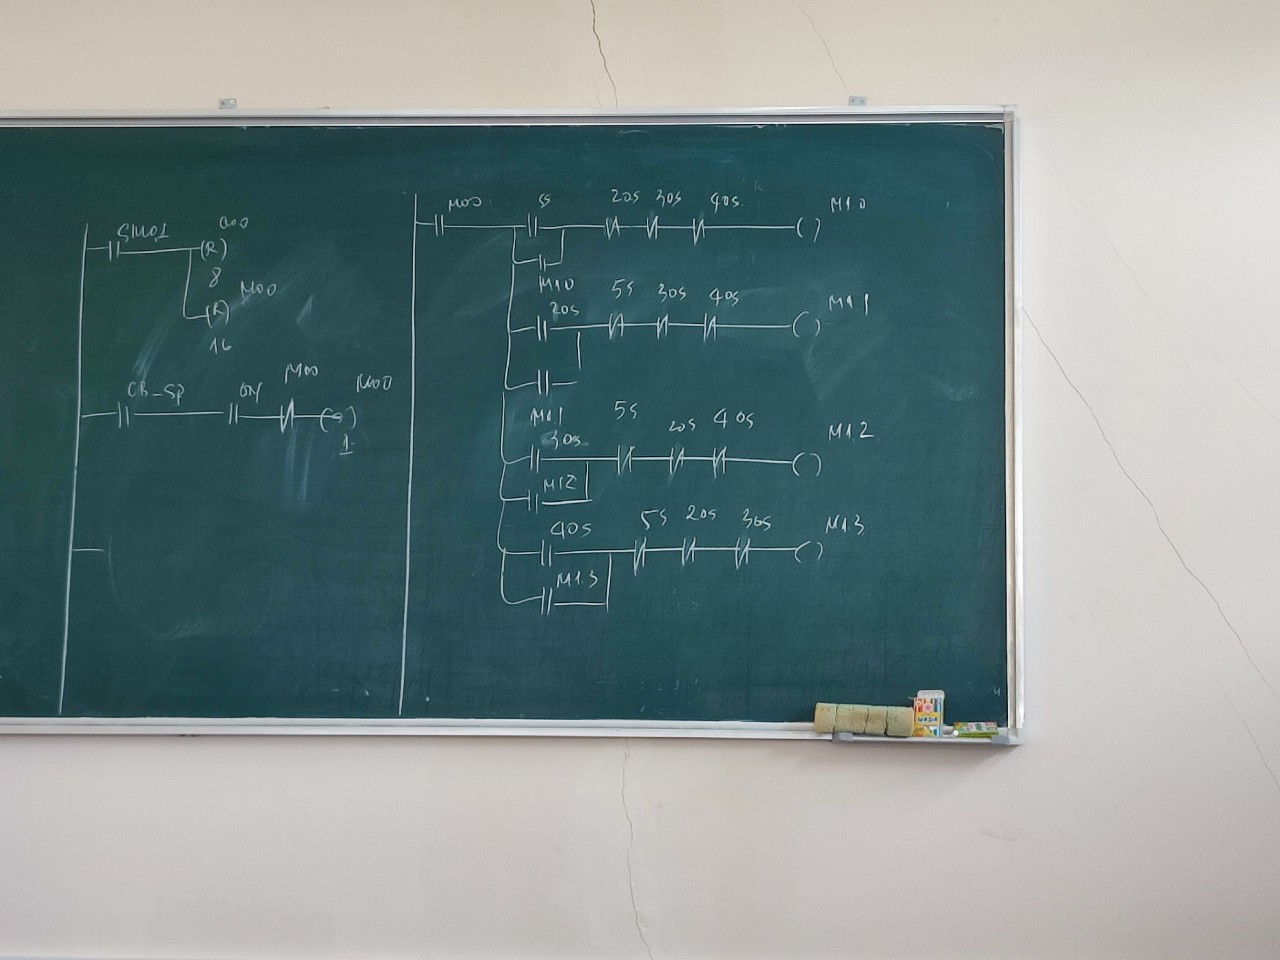 SM0.1
Q0.0
(R)
8
M0.0
(R)
16
CB_SP
ON
M0.0
M0.0
1
M0.0
5s
20s 30s 40s
M1.0
( )
M1.0
20s
5s 30s 40s
M1.1
( )
M1.1
30s
5s 20s 40s
M1.2
( )
M1.2
40s
5s 20s 30s
M1.3
( )
M1.3